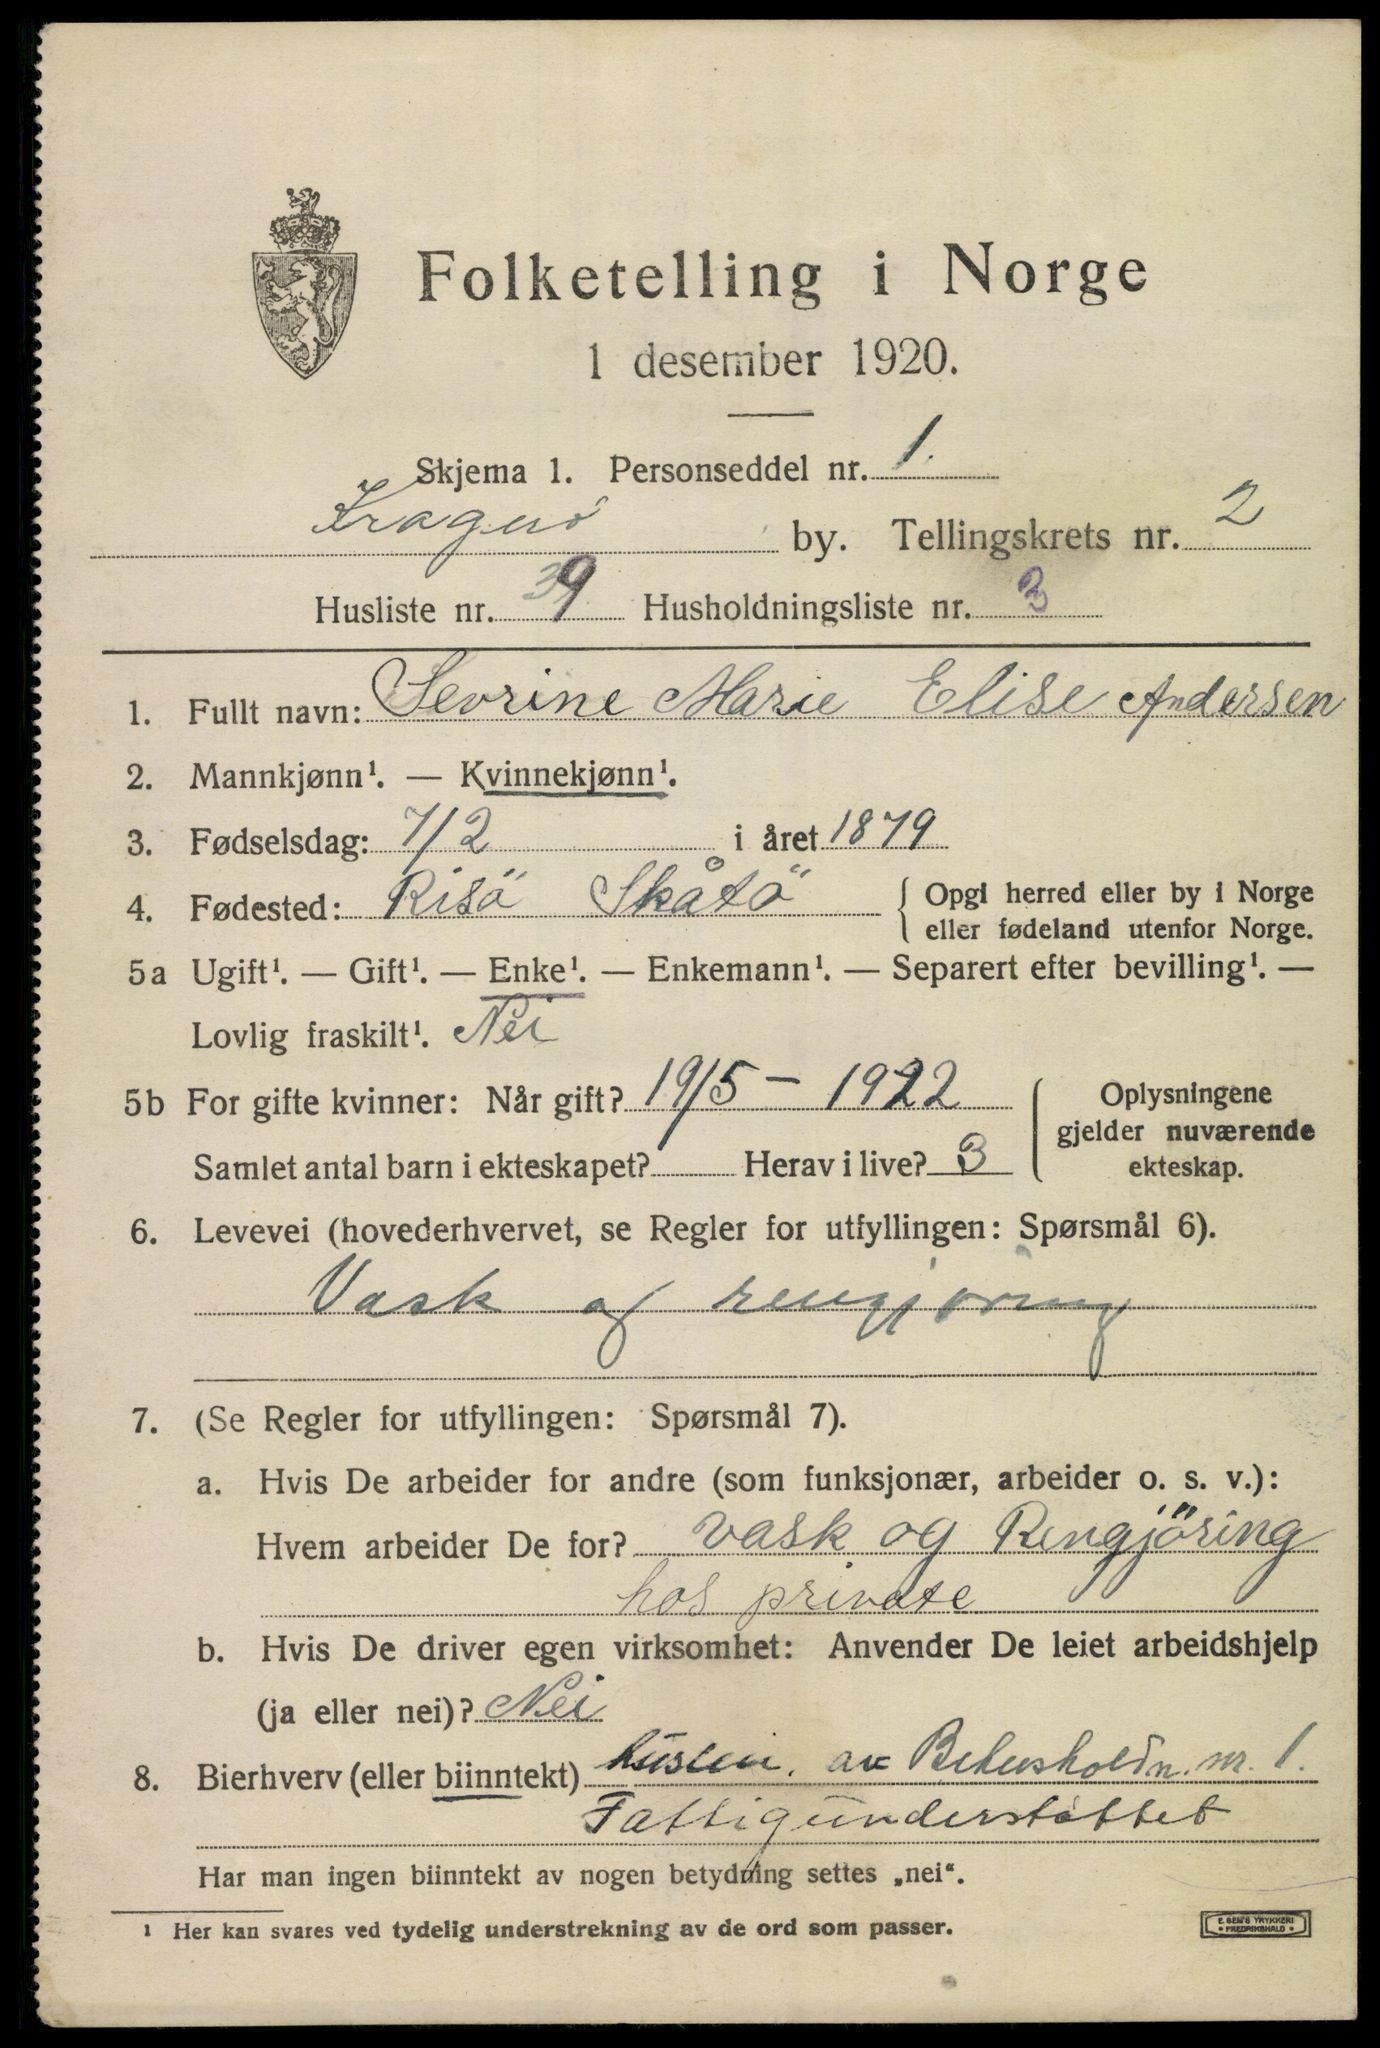 Folketelling i Norge
1 desember 1920.
Skjema 1. Personseddel nr. 1.
Kragerö by. Tellingskrets nr. 2
Husliste nr. 39 Husholdningsliste nr. 3
1. Fullt navn: Sevrine Marie Elise Andersen
2. Mannkjønn¹. — Kvinnekjønn¹.
3. Fødselsdag: 7/2 i året 1879
4. Fødested: Risö Skåtö { Opgi herred eller by i Norge
eller fødeland utenfor Norge.
5a Ugift¹. — Gift¹. — Enke¹. — Enkemann¹. — Separert efter bevilling¹. —
Lovlig fraskilt¹. Nei
5b For gifte kvinner: Når gift? 19/5 – 1922
Samlet antal barn i ekteskapet? Herav i live? 3
Oplysningene
gjelder nuværende
ekteskap.
6. Levevei (hovederhvervet, se Regler for utfyllingen: Spørsmål 6).
Vask og rengjöring
7. (Se Regler for utfyllingen: Spørsmål 7).
a. Hvis De arbeider for andre (som funksjonær, arbeider o. s. v.):
Hvem arbeider De for? vask og Rengjöring
hos private
b. Hvis De driver egen virksomhet: Anvender De leiet arbeidshjelp
(ja eller nei)? Nei
8. Bierhverv (eller biinntekt) av nr. 1.
Fattigunderstøttet
Har man ingen biinntekt av nogen betydning settes „nei“.
¹ Her kan svares ved tydelig understrekning av de ord som passer.
E. SEM'S TRYKKERI
• FREDRIKSHALD •